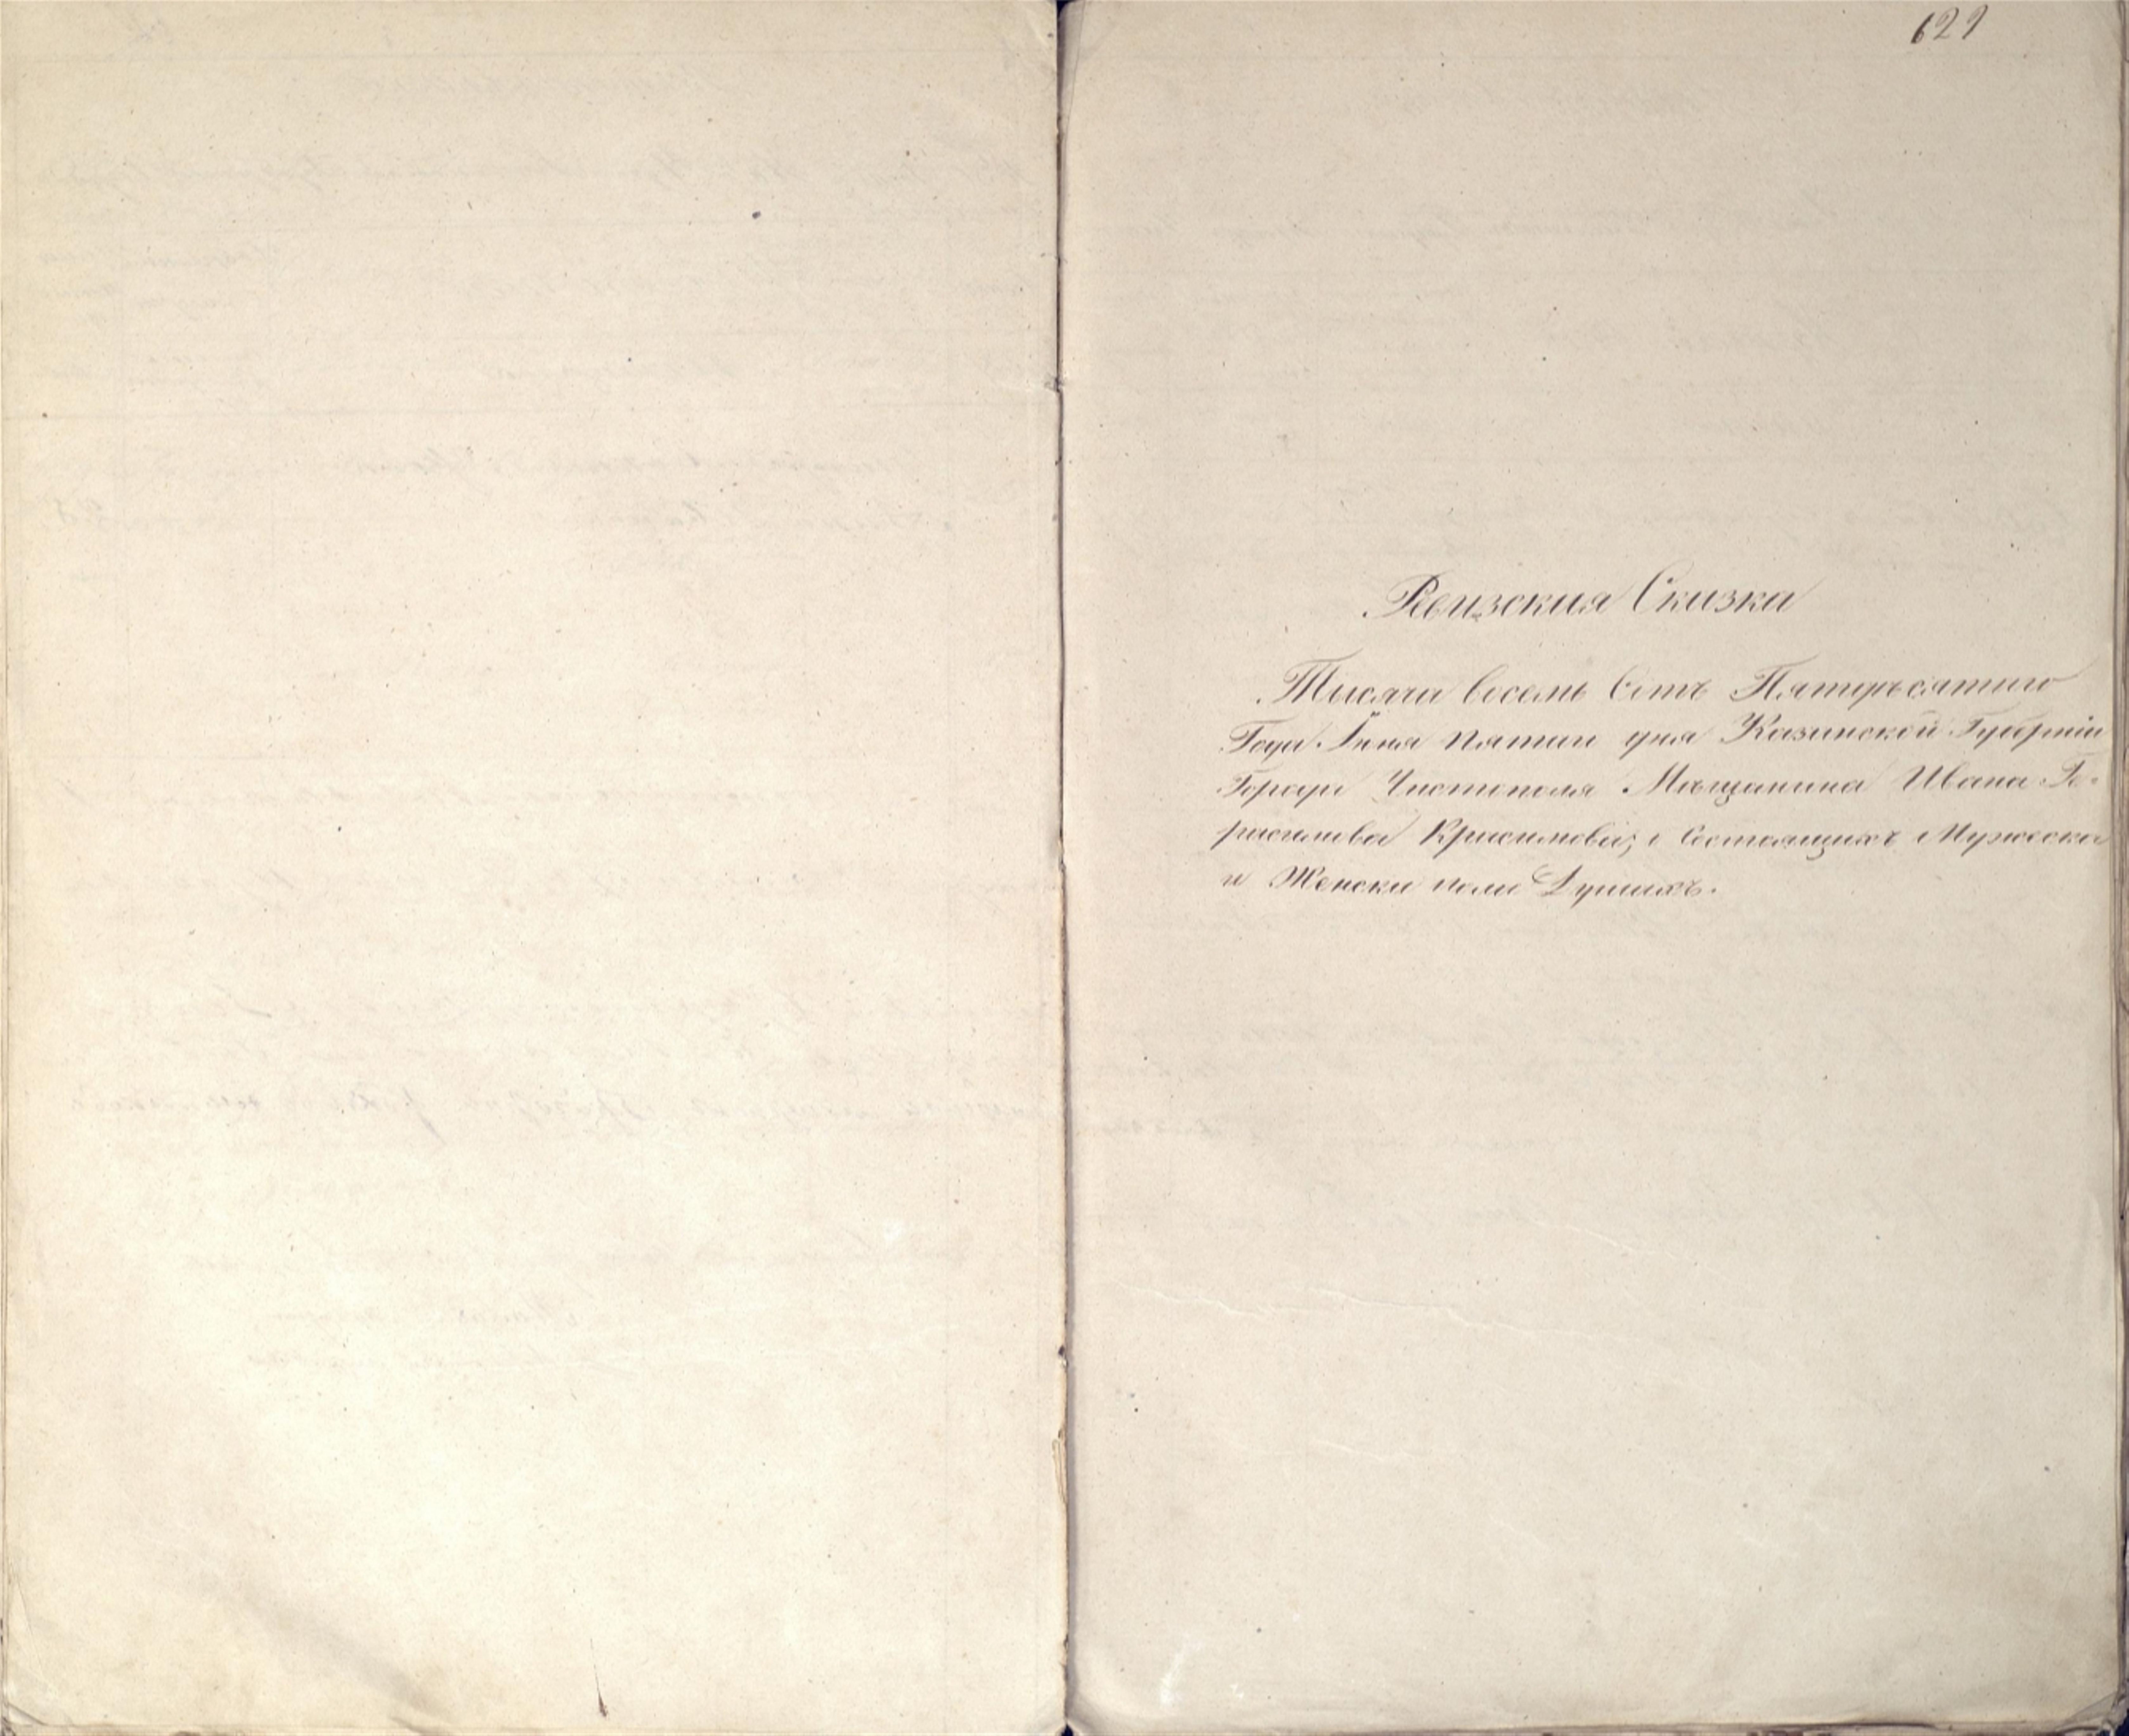 621
Ревизская Сказка
Тысяча восемь Сотъ Пятьдесятаго
Года Іюня пятаго дня Казанской Губерніи
Города Чистополя Мѣщанина Ивана Ге-
расимова Красимова; о Состоящихъ Мужеска
и Женска пола Душахъ.